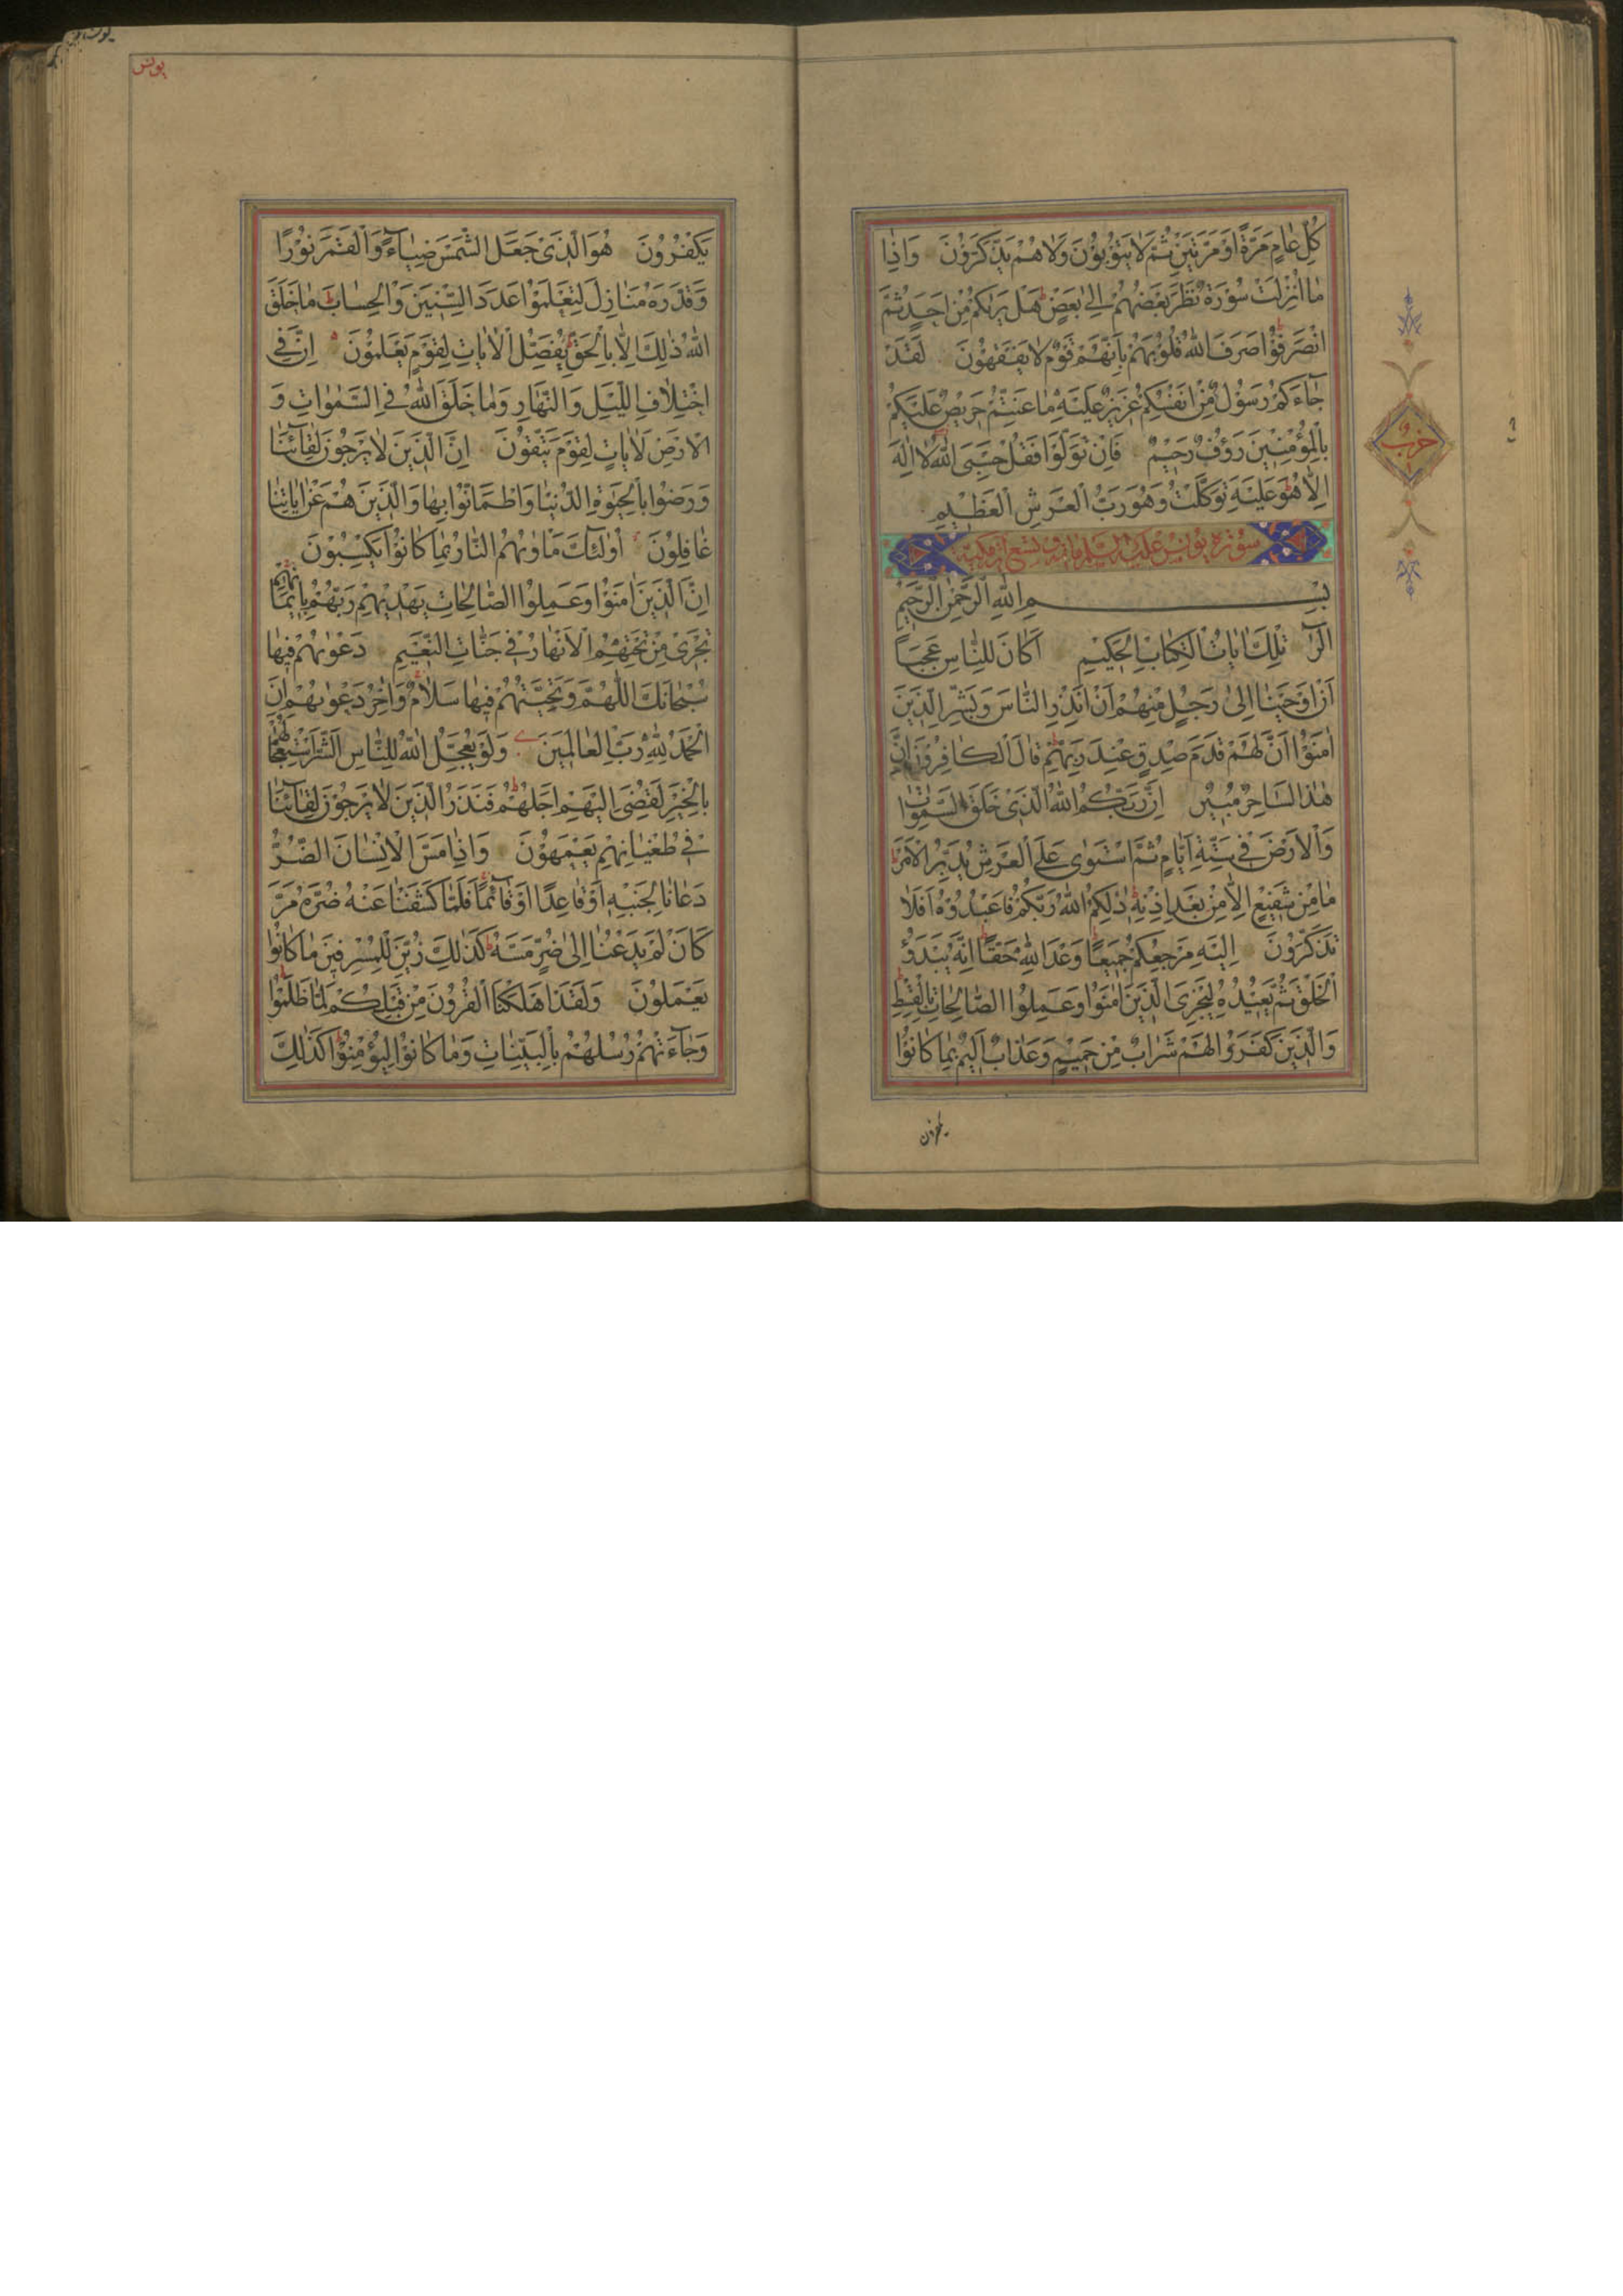 كُلِّ عٰامٍ مَرَّةً اَوْ مَرَّتَيْنِ ثُمَّ لاٰ يَتُوْبُوْنَ وَلاٰ هُمْ يَذَّكَّرُوْنَ وَاِذٰا
مٰا اُنْزِلَتْ سُوْرَةٌ نَظَرَ بَعْضُهُمْ اِلىٰ بَعْضٍ هَلْ يَرٰىكُمْ مِنْ اَحَدٍ ثُمَّ
انْصَرَفُوْا صَرَفَ اللّٰهُ قُلُوْبَهُمْ بِاَنَّهُمْ قَوْمٌ لاٰ يَفْقَهُوْنَ لَقَدْ
جٰٓاءَكُمْ رَسُوْلٌ مِنْ اَنْفُسِكُمْ عَزِيْزٌ عَلَيْهِ مٰا عَنِتُّمْ حَرِيْصٌ عَلَيْكُمْ
بِالْمُؤْمِنِيْنَ رَؤُفٌ رَحِيْمٌ فَاِنْ تَوَلَّوْا فَقُلْ حَسْبِيَ اللّٰهُ لاٰ اِلٰهَ
اِلاّٰ هُوَ عَلَيْهِ تَوَكَّلْتُ وَهُوَ رَبُّ الْعَرْشِ الْعَظِيْمِ
حزب
سورة يونس عليه السلم مائة وتسع اية مكية
بِسْمِ اللّٰهِ الرَّحْمٰنِ الرَّحِيْمِ
الٓرٰ تِلْكَ اٰيٰاتُ الْكِتٰابِ الْحَكِيْمِ اَكٰانَ لِلنّٰاسِ عَجَبًا
اَنْ اَوْحَيْنٰا اِلىٰ رَجُلٍ مِنْهُمْ اَنْ اَنْذِرِ النّٰاسَ وَبَشِّرِ الَّذِيْنَ
اٰمَنُوْا اَنَّ لَهُمْ قَدَمَ صِدْقٍ عِنْدَ رَبِّهِمْ قٰالَ الْكٰافِرُوْنَ اِنَّ
هٰذٰا لَسٰاحِرٌ مُبِيْنٌ اِنَّ رَبَّكُمُ اللّٰهُ الَّذِيْ خَلَقَ السَّمٰوٰاتِ
وَالْاَرْضَ فِيْ سِتَّةِ اَيّٰامٍ ثُمَّ اسْتَوٰى عَلَى الْعَرْشِ يُدَبِّرُ الْاَمْرَ
مٰا مِنْ شَفِيْعٍ اِلاّٰ مِنْ بَعْدِ اِذْنِهِ ذٰلِكُمُ اللّٰهُ رَبُّكُمْ فَاعْبُدُوْهُ اَفَلاٰ
تَذَكَّرُوْنَ اِلَيْهِ مَرْجِعُكُمْ جَمِيْعًا وَعْدَ اللّٰهِ حَقًّا اِنَّهُ يَبْدَؤُ
الْخَلْقَ ثُمَّ يُعِيْدُهُ لِيَجْزِيَ الَّذِيْنَ اٰمَنُوْا وَعَمِلُوا الصّٰالِحٰاتِ بِالْقِسْطِ
وَالَّذِيْنَ كَفَرُوْا لَهُمْ شَرٰابٌ مِنْ حَمِيْمٍ وَعَذٰابٌ اَلِيْمٌ بِمٰا كٰانُوْا
يكفرون
يونس
يَكْفُرُوْنَ هُوَ الَّذِيْ جَعَلَ الشَّمْسَ ضِيٰٓاءً وَالْقَمَرَ نُوْرًا
وَقَدَّرَهُ مَنٰازِلَ لِتَعْلَمُوْا عَدَدَ السِّنِيْنَ وَالْحِسٰابَ مٰا خَلَقَ
اللّٰهُ ذٰلِكَ اِلاّٰ بِالْحَقِّ يُفَصِّلُ الْاٰيٰاتِ لِقَوْمٍ يَعْلَمُوْنَ اِنَّ فِي
اخْتِلاٰفِ اللَّيْلِ وَالنَّهٰارِ وَمٰا خَلَقَ اللّٰهُ فِي السَّمٰوٰاتِ وَ
الْاَرْضِ لَاٰيٰاتٍ لِقَوْمٍ يَتَّقُوْنَ اِنَّ الَّذِيْنَ لاٰ يَرْجُوْنَ لِقٰٓاءَنٰا
وَرَضُوْا بِالْحَيٰوةِ الدُّنْيٰا وَاطْمَاَنُّوْا بِهٰا وَالَّذِيْنَ هُمْ عَنْ اٰيٰاتِنٰا
غٰافِلُوْنَ اُولٰٓئِكَ مَاْوٰىهُمُ النّٰارُ بِمٰا كٰانُوْا يَكْسِبُوْنَ
اِنَّ الَّذِيْنَ اٰمَنُوْا وَعَمِلُوا الصّٰالِحٰاتِ يَهْدِيْهِمْ رَبُّهُمْ بِاِيْمٰانِهِمْ
تَجْرِيْ مِنْ تَحْتِهِمُ الْاَنْهٰارُ فِيْ جَنّٰاتِ النَّعِيْمِ دَعْوٰىهُمْ فِيْهٰا
سُبْحٰانَكَ اللّٰهُمَّ وَتَحِيَّتُهُمْ فِيْهٰا سَلاٰمٌ وَاٰخِرُ دَعْوٰىهُمْ اَنِ
الْحَمْدُ لِلّٰهِ رَبِّ الْعٰالَمِيْنَ وَلَوْ يُعَجِّلُ اللّٰهُ لِلنّٰاسِ الشَّرَّ اسْتِعْجٰالَهُمْ
بِالْخَيْرِ لَقُضِيَ اِلَيْهِمْ اَجَلُهُمْ فَنَذَرُ الَّذِيْنَ لاٰ يَرْجُوْنَ لِقٰٓاءَنٰا
فِيْ طُغْيٰانِهِمْ يَعْمَهُوْنَ وَاِذٰا مَسَّ الْاِنْسٰانَ الضُّرُّ
دَعٰانٰا لِجَنْبِهِ اَوْ قٰاعِدًا اَوْ قٰٓائِمًا فَلَمّٰا كَشَفْنٰا عَنْهُ ضُرَّهُ مَرَّ
كَاَنْ لَمْ يَدْعُنٰا اِلىٰ ضُرٍّ مَسَّهُ كَذٰلِكَ زُيِّنَ لِلْمُسْرِفِيْنَ مٰا كٰانُوْا
يَعْمَلُوْنَ وَلَقَدْ اَهْلَكْنَا الْقُرُوْنَ مِنْ قَبْلِكُمْ لَمّٰا ظَلَمُوْا
وَجٰٓاءَتْهُمْ رُسُلُهُمْ بِالْبَيِّنٰاتِ وَمٰا كٰانُوْا لِيُؤْمِنُوْا كَذٰلِكَ